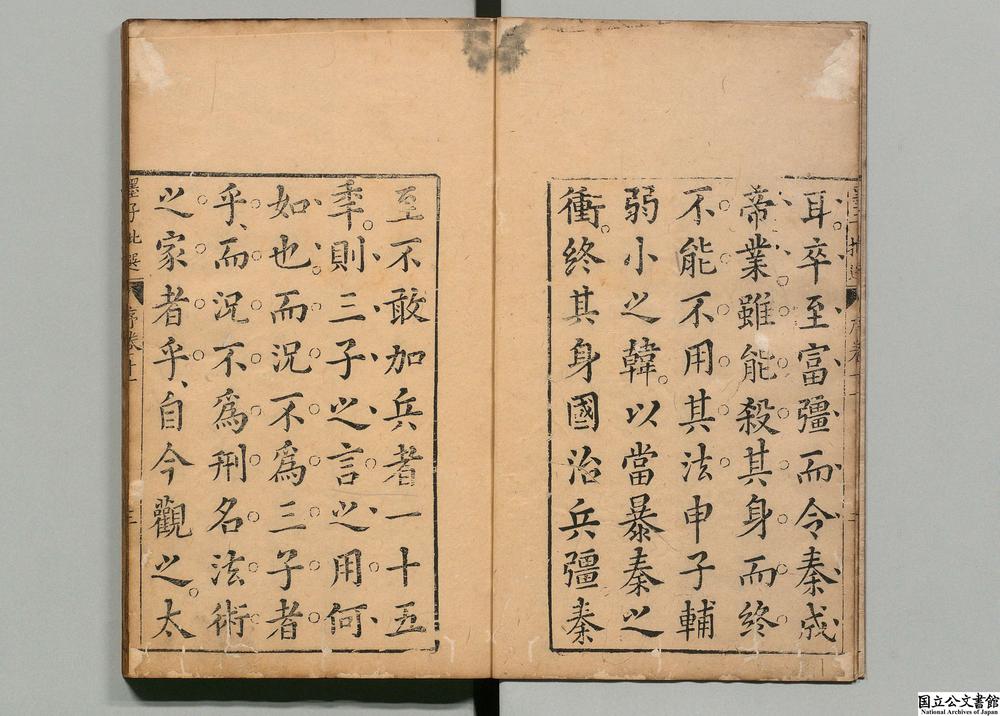 耳卒至富彊而令秦成
帝業雖能殺其身而終
不能不用其法申子輔
弱小之韓以當暴秦之
衝終其身國治兵彊秦
至不敢加兵者一十五
秊則三子之言之用何
如也而況不爲三子者
乎而況不爲刑名法術
之家者乎自今觀之太
墨子批選
序卷之一
国立公文書館
National Archives of Japan